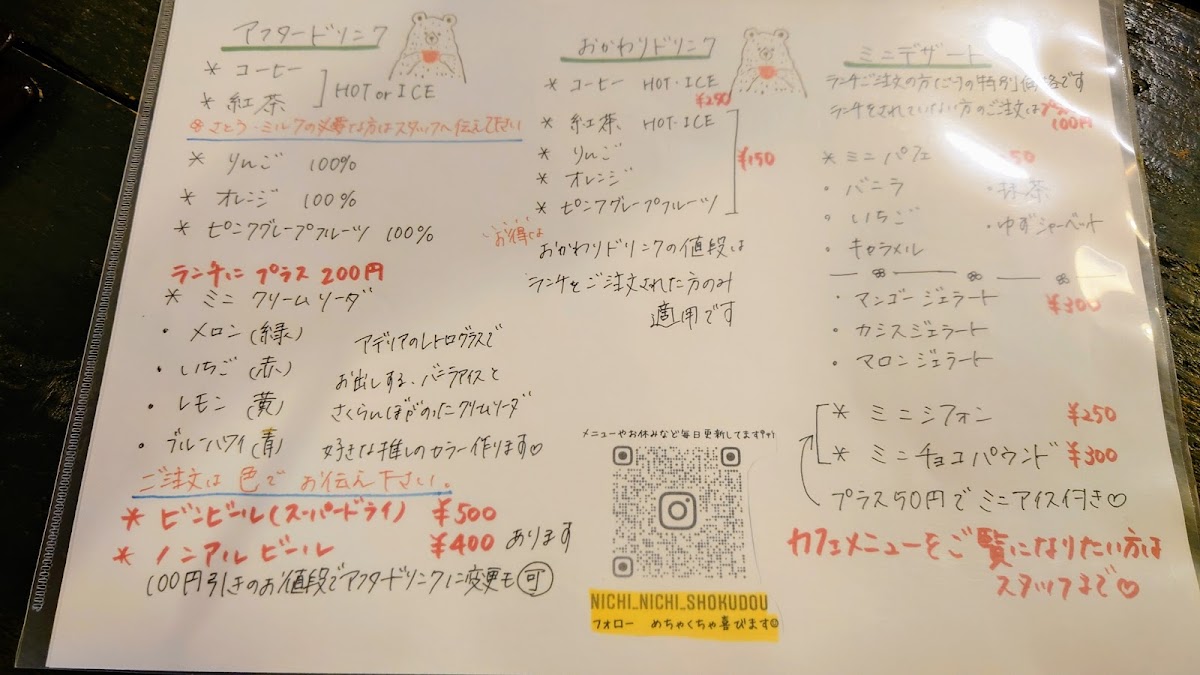 アフタードリンク
* コーヒー
* 紅茶
HOT or ICE
※ さとう・ミルクの必要な方はスタッフへ伝えて下さい
* りんご 100%
* オレンジ 100%
* ピンクグレープフルーツ 100%
ランチに プラス 200円
* ミニ クリームソーダ
・ メロン (緑)
・ いちご (赤)
・ レモン (黄)
・ ブルーハワイ (青)
アデリアのレトログラスで
お出しする、バニラアイスと
さくらんぼがのったクリームソーダ
好きな推しのカラー作ります♡
ご注文は 色で お伝え下さい。
* ビンビール(スーパードライ) ¥500
* ノンアルビール ¥400 あります
100円引きのお値段でアフタードリンクに変更も 可
おかわりドリンク
* コーヒー HOT・ICE
¥250
* 紅茶 HOT・ICE
* りんご
* オレンジ
* ピンクグレープフルーツ
¥150
お得な
おかわりドリンクの値段は
ランチをご注文された方のみ
適用です
メニューやお休みなど毎日更新してます
NICHI_NICHI_SHOKUDOU
フォロー めちゃくちゃ喜びます
ミニデザート
ランチご注文の方だけの特別価格です
ランチをされていない方のご注文はプラス
100円
* ミニパフェ
・ バニラ ・抹茶
・ いちご ・ゆずシャーベット
・ キャラメル
・ マンゴージェラート ¥300
・ カシスジェラート
・ マロンジェラート
* ミニシフォン ¥250
* ミニチョコパウンド ¥300
プラス50円でミニアイス付き♡
カフェメニューをご覧になりたい方は
スタッフまで♡